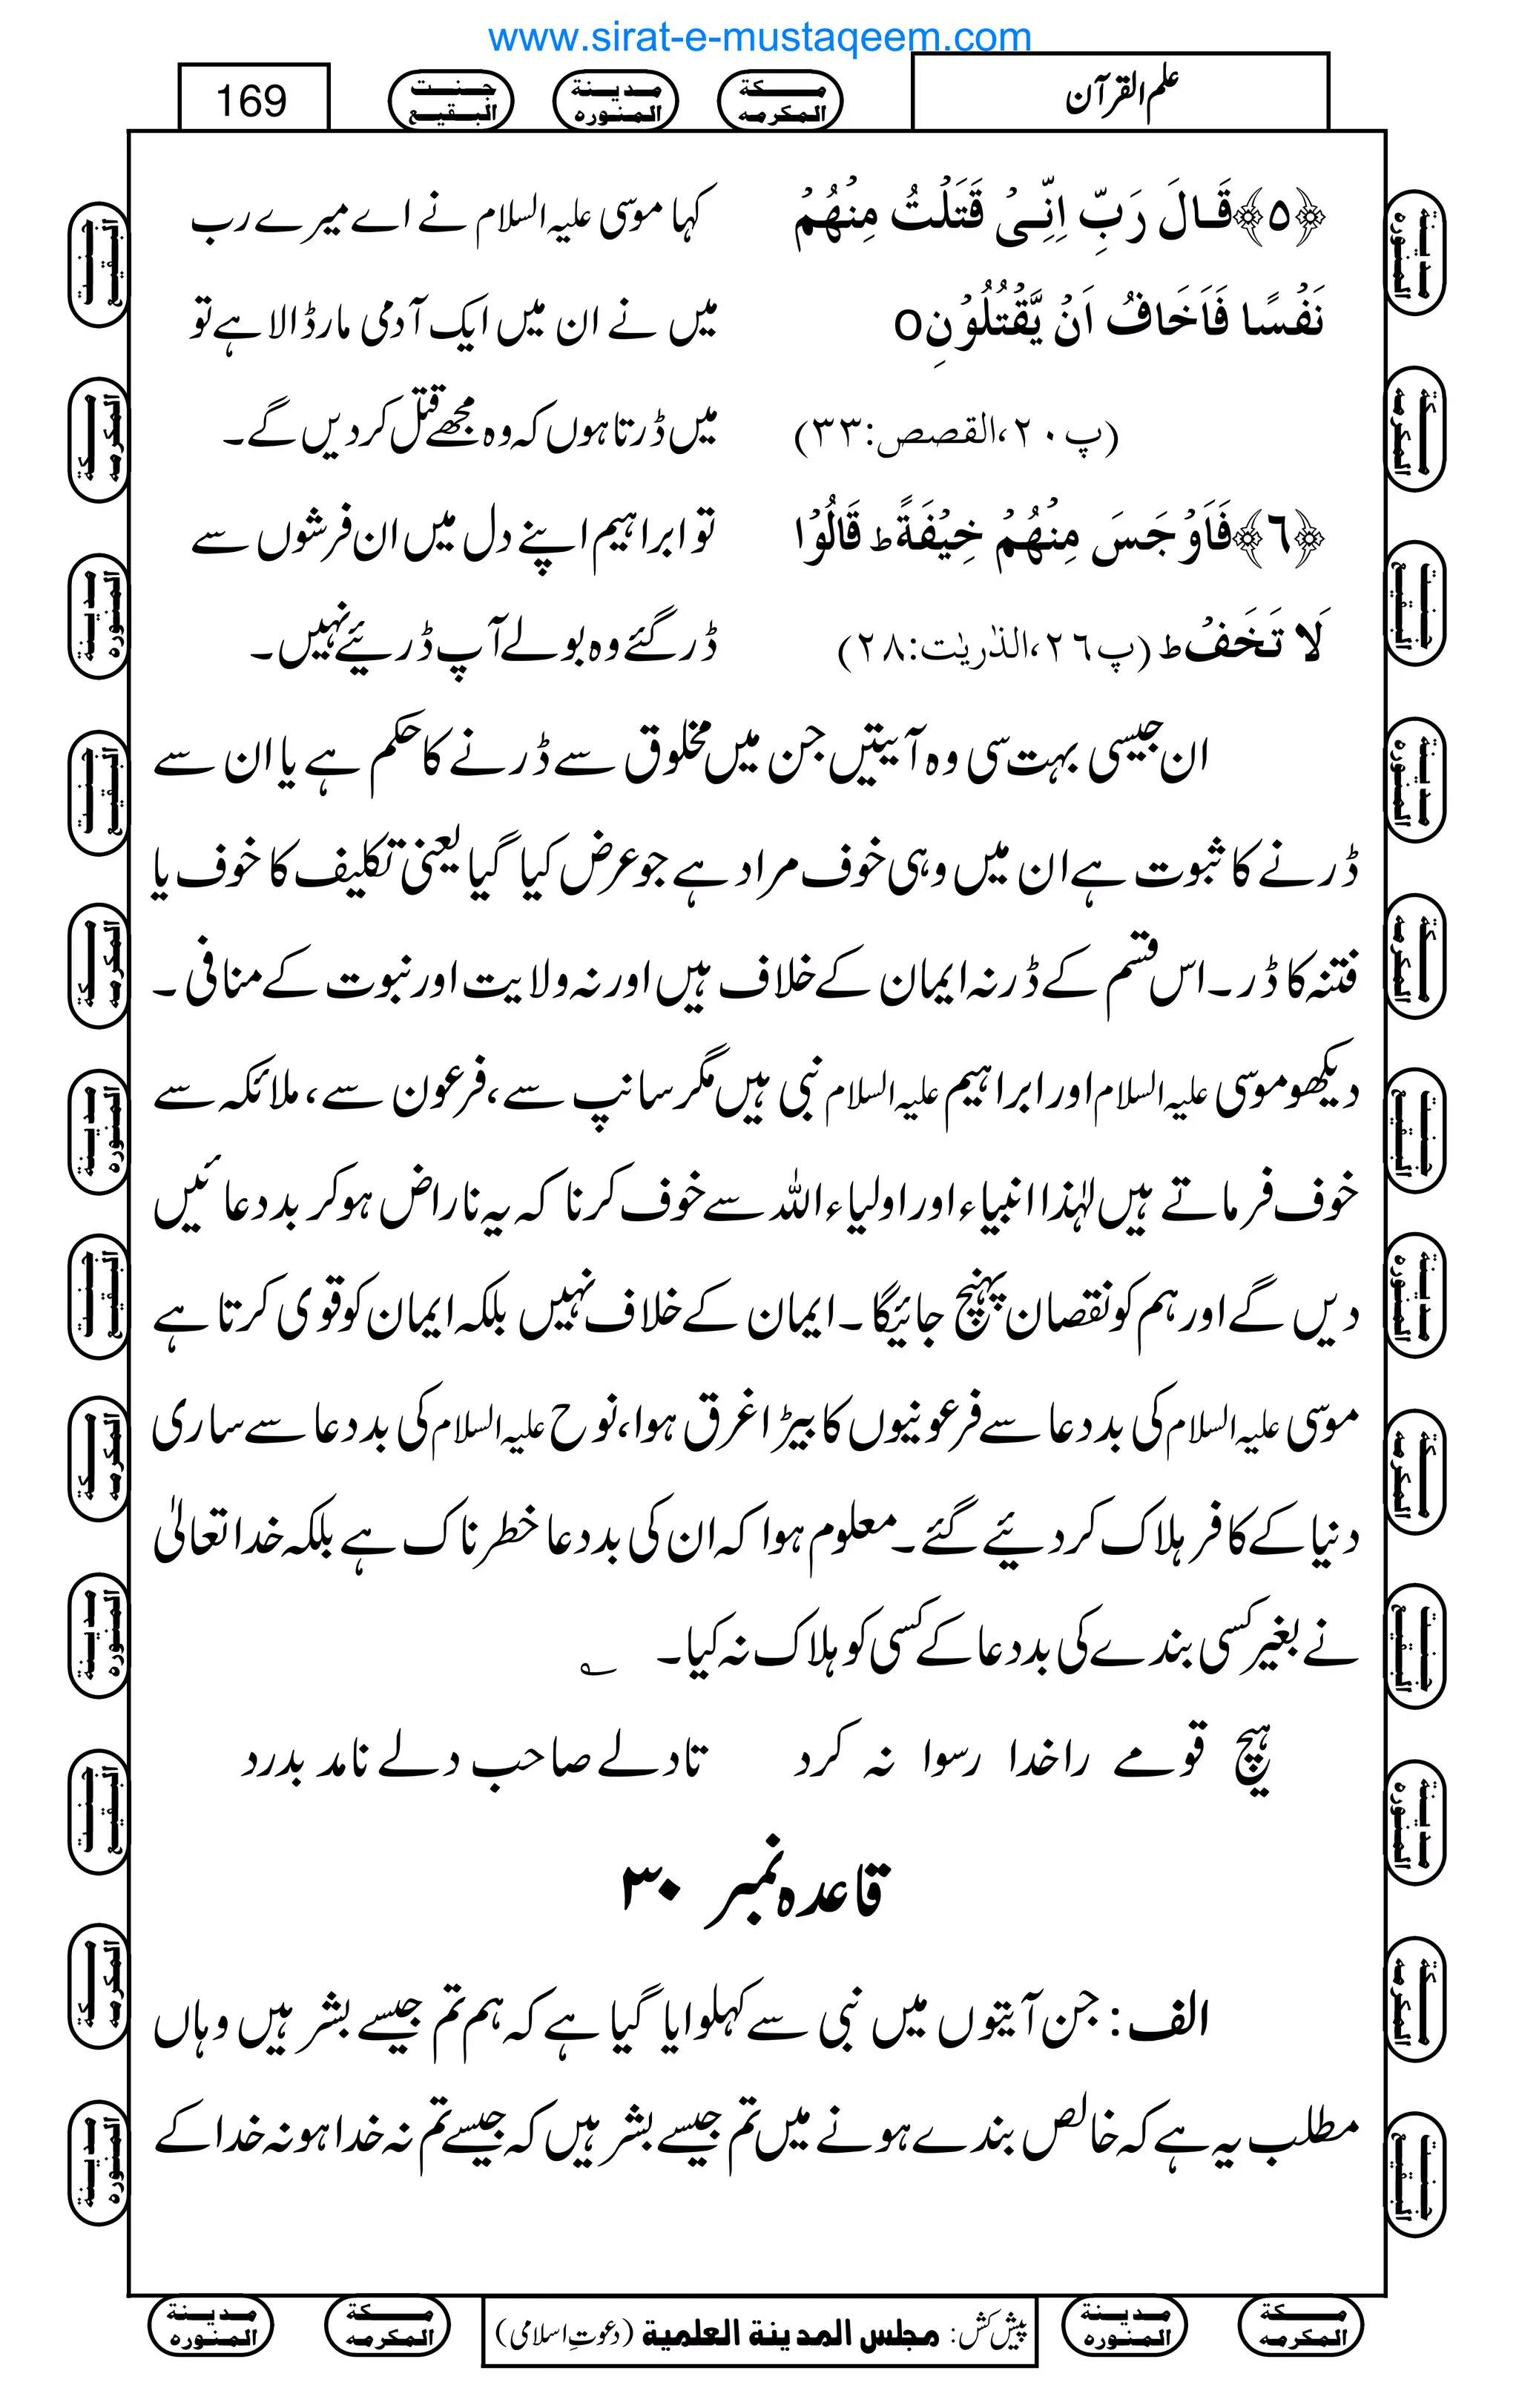 www.sirat-e-mustaqeem.com
علم القرآن
مكة المكرمه
مدينة المنوره
جنت البقيع
169
﴿٥﴾قَالَ رَبِّ اِنِّیۡ قَتَلۡتُ مِنۡهُمۡ
کہا موسیٰ علیہ السلام نے اے میرے رب
نَفۡسًا فَاَخَافُ اَنۡ یَّقۡتُلُوۡنِo
میں نے ان میں ایک آدمی مار ڈالا ہے تو
(پ۲۰،القصص:۳۳)
میں ڈرتا ہوں کہ وہ مجھے قتل کر دیں گے۔
﴿٦﴾فَاَوۡجَسَ مِنۡهُمۡ خِیۡفَةً ط قَالُوۡا
تو ابراہیم اپنے دل میں ان فرشوں سے
لَا تَخَفۡ ط (پ۲٦،الذّٰریٰت:۲۸)
ڈر گئے وہ بولے آپ ڈریئے نہیں۔
ان جیسی بہت سی وہ آیتیں جن میں مخلوق سے ڈرنے کا حکم ہے یا ان سے
ڈرنے کا ثبوت ہے ان میں وہی خوف مراد ہے جو عرض کیا گیا یعنی تکلیف کا خوف یا
فتنہ کا ڈر۔ اس قسم کے ڈر نہ ایمان کے خلاف ہیں اور نہ ولایت اور نبوت کے منافی ۔
دیکھو موسیٰ علیہ السلام اور ابراہیم علیہ السلام نبی ہیں مگر سانپ سے، فرعون سے، ملائکہ سے
خوف فرماتے ہیں لہٰذا انبیاء اور اولیاء اللہ سے خوف کرنا کہ یہ ناراض ہو کر بددعائیں
دیں گے اور ہم کو نقصان پہنچ جائیگا۔ ایمان کے خلاف نہیں بلکہ ایمان کو قوی کرتا ہے
موسیٰ علیہ السلام کی بددعا سے فرعونیوں کا بیڑا غرق ہوا، نوح علیہ السلام کی بددعا سے ساری
دنیا کے کافر ہلاک کر دیئے گئے۔ معلوم ہوا کہ ان کی بددعا خطرناک ہے بلکہ خدا تعالیٰ
نے بغیر کسی بندے کی بددعا کے کسی کو ہلاک نہ کیا۔ ؎
ہیچ قومے را خدا رسوا نہ کرد تا دلے صاحب دلے نامد بدرد
قاعدہ نمبر ۳۰
الف: جن آیتوں میں نبی سے کہلوایا گیا ہے کہ ہم تم جیسے بشر ہیں وہاں
مطلب یہ ہے کہ خالص بندے ہونے میں تم جیسے بشر ہیں کہ جیسے تم نہ خدا ہو نہ خدا کے
مكة المكرمه
مدينة المنوره
پیش کش: مجلس المدينة العلمية (دعوتِ اسلامی)
مكة المكرمه
مدينة المنوره